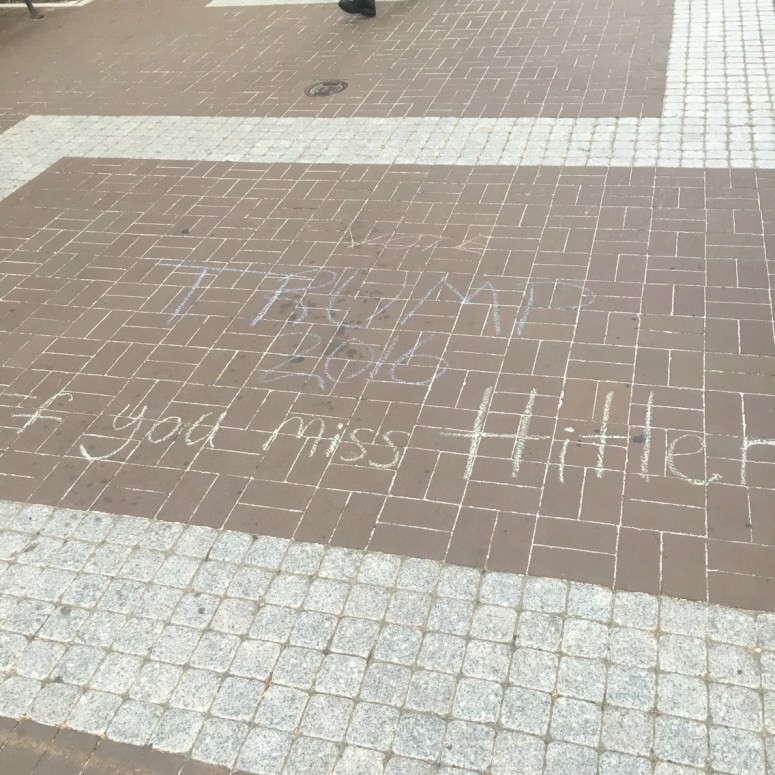 Vote
TRUMP
2016
f you miss Hitler